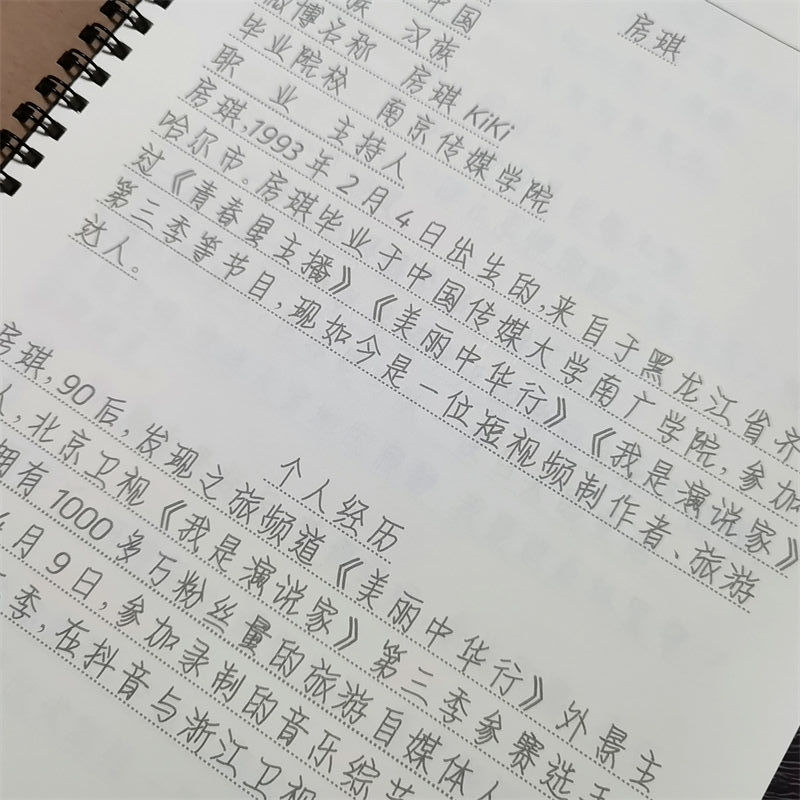 房琪
中国
族 汉族
微博名称 房琪KiKi
毕业院校 南京传媒学院
职 业 主持人
房琪,1993年2月4日出生的,来自于黑龙江省齐
哈尔市。房琪毕业于中国传媒大学南广学院,参加
过《青春星主播》《美丽中华行》《我是演说家》
第三季等节目,现如今是一位短视频制作者、旅游
达人。
个人经历
房琪,90后,发现之旅频道《美丽中华行》外景主
人,北京卫视《我是演说家》第三季参赛选手
拥有1000多万粉丝量的旅游自媒体人
4月9日,参加录制的音乐综艺
季,在抖音与浙江卫视